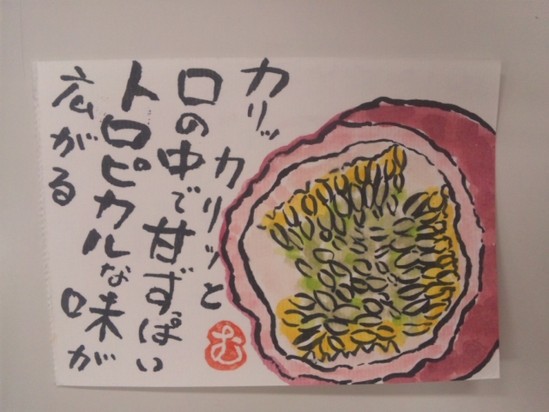 カリッ カリッと
口の中で甘ずっぱい
トロピカルな味が
広がる
む